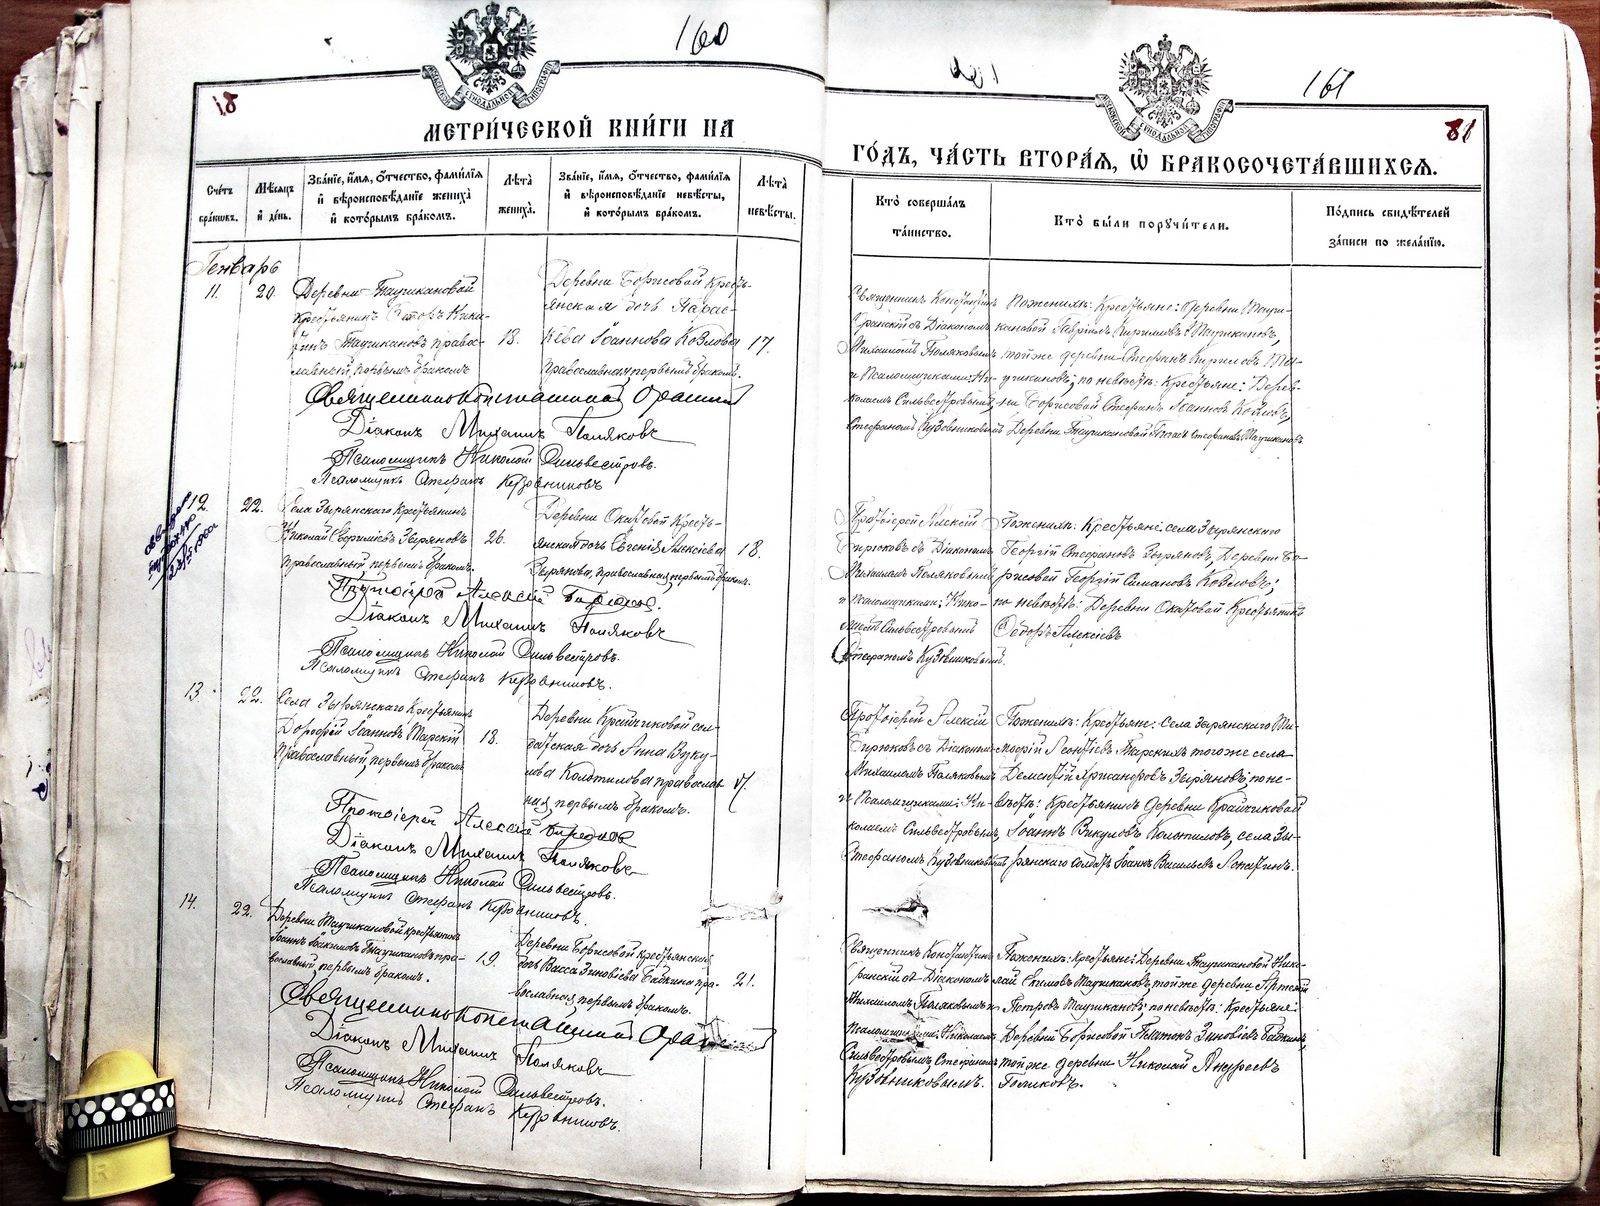 160
18
МЕТРИ́ЧЕСКОЙ КНИ́ГИ НА
Сче́тъ бра́ковъ.
Мѣ́сяцъ и́ де́нь.
Зва́нїе, и́мя, ѻ҆́тчество, фами́лїя и́ вѣроисповѣ́данїе жениха̀ и́ кото́рымъ бра́комъ.
Лѣ́та жениха̀.
Зва́нїе, и́мя, ѻ҆́тчество, фами́лїя и́ вѣроисповѣ́данїе невѣ́сты, и́ кото́рымъ бра́комъ.
Лѣ́та невѣ́сты.
Генварь
11.
20.
Деревни Таушкановой
крестьянинъ
Таушкановъ право-
славный, первымъ бракомъ
18.
Деревни Борисовой кресть-
янская дочь Парас-
кева Іоаннова Козлова
православная, первымъ бракомъ.
17.
Священникъ Константинъ
Діаконъ Михаилъ Поляковъ
Псаломщикъ Николай Сильвестровъ.
Псаломщикъ Стефанъ Кузовниковъ
12.
22.
Села Зырянскаго крестьянинъ
Николай Зыряновъ
православный, первымъ бракомъ.
26.
Деревни Окатовой кресть-
янская дочь Евгенія Алексіева
Зырянова, православная, первымъ бракомъ.
18.
Протоіерей Алексій Бирюковъ.
Діаконъ Михаилъ Поляковъ
Псаломщикъ Николай Сильвестровъ.
Псаломщикъ Стефанъ Кузовниковъ.
13.
22.
Села Зырянскаго крестьянинъ
Дорофей Іоанновъ Тарскій
православный, первымъ бракомъ
18.
Деревни Крайчиковой сол-
датская дочь Анна Вуку-
лова Колотилова православ-
ная, первымъ бракомъ.
17.
Протоіерей Алексій Бирюковъ
Діаконъ Михаилъ Поляковъ
Псаломщикъ Николай Сильвестровъ.
Псаломщикъ Стефанъ Кузовниковъ.
14.
22.
Деревни Таушкановой крестьянинъ
Іоаннъ Іоакимовъ Таушкановъ пра-
вославный, первымъ бракомъ.
19.
Деревни Борисовой крестьянская
дочь Васса Зиновіева Бабкина пра-
вославная первымъ бракомъ.
21.
Священникъ Константинъ
Діаконъ Михаилъ Поляковъ
Псаломщикъ Николай Сильвестровъ.
Псаломщикъ Стефанъ Кузовниковъ.
161
81
ГО́ДЪ, ЧА́СТЬ ВТОРА́Я, Ѡ҆ БРАКОСОЧЕТА́ВШИХСЯ.
Кто̀ соверша́лъ та́инство.
Кто̀ бы́ли поручи́тели.
По́дпись свидѣ́телей за́писи по жела́нїю.
Священникъ Константинъ
съ Діакономъ
Михаиломъ Поляковымъ
и Псаломщиками: Ни-
колаемъ Сильвестровымъ,
Стефаномъ Кузовниковымъ
По женихѣ: Крестьяне: Деревни Тауш-
кановой Гавріилъ Кириловъ Таушкановъ,
той же деревни Стефанъ Кириловъ Та-
ушкановъ; по невѣстѣ: Крестьяне: Дерев-
ни Борисовой Стефанъ Іоанновъ Козловъ,
Деревни Таушкановой Стефановъ Таушкановъ
Протоіерей Алексій
Бирюковъ съ Діакономъ
Михаиломъ Поляковымъ
и псаломщиками: Нико-
лаемъ Сильвестровымъ
Стефаномъ Кузовниковымъ.
По женихѣ: Крестьяне: села Зырянскаго
Георгій Стефановъ Зыряновъ, Деревни Бо-
рисовой Георгій Симановъ Козловъ;
по невѣстѣ: Деревни Окатовой Крестьянинъ
Ѳедоръ Алексіевъ
Протоіерей Алексій
Бирюковъ съ Діакономъ
Михаиломъ Поляковымъ
и Псаломщиками: Ни-
колаемъ Сильвестровымъ,
Стефаномъ Кузовниковымъ
По женихѣ: Крестьяне: Села Зырянскаго Ти-
мофей Леонтіевъ Тарскихъ того же села
Дементій Зыряновъ; по не-
вѣстѣ: Крестьянинъ деревни Крайчиковой
Іоаннъ Викуловъ Колотиловъ, села Зы-
рянскаго солдатъ Іоаннъ Васильевъ Лопатинъ.
Священникъ Константинъ
съ Діакономъ
Михаиломъ Поляковымъ и
Псаломщиками: Николаемъ
Сильвестровымъ, Стефаномъ
Кузовниковымъ.
По женихѣ: Крестьяне: Деревни Таушкановой Нико-
лай Таушкановъ, той же деревни
Петровъ Таушкановъ; по невѣстѣ: Крестьяне:
Деревни Борисовой Зиновіевъ Бабкинъ,
той же деревни Николай Андреевъ